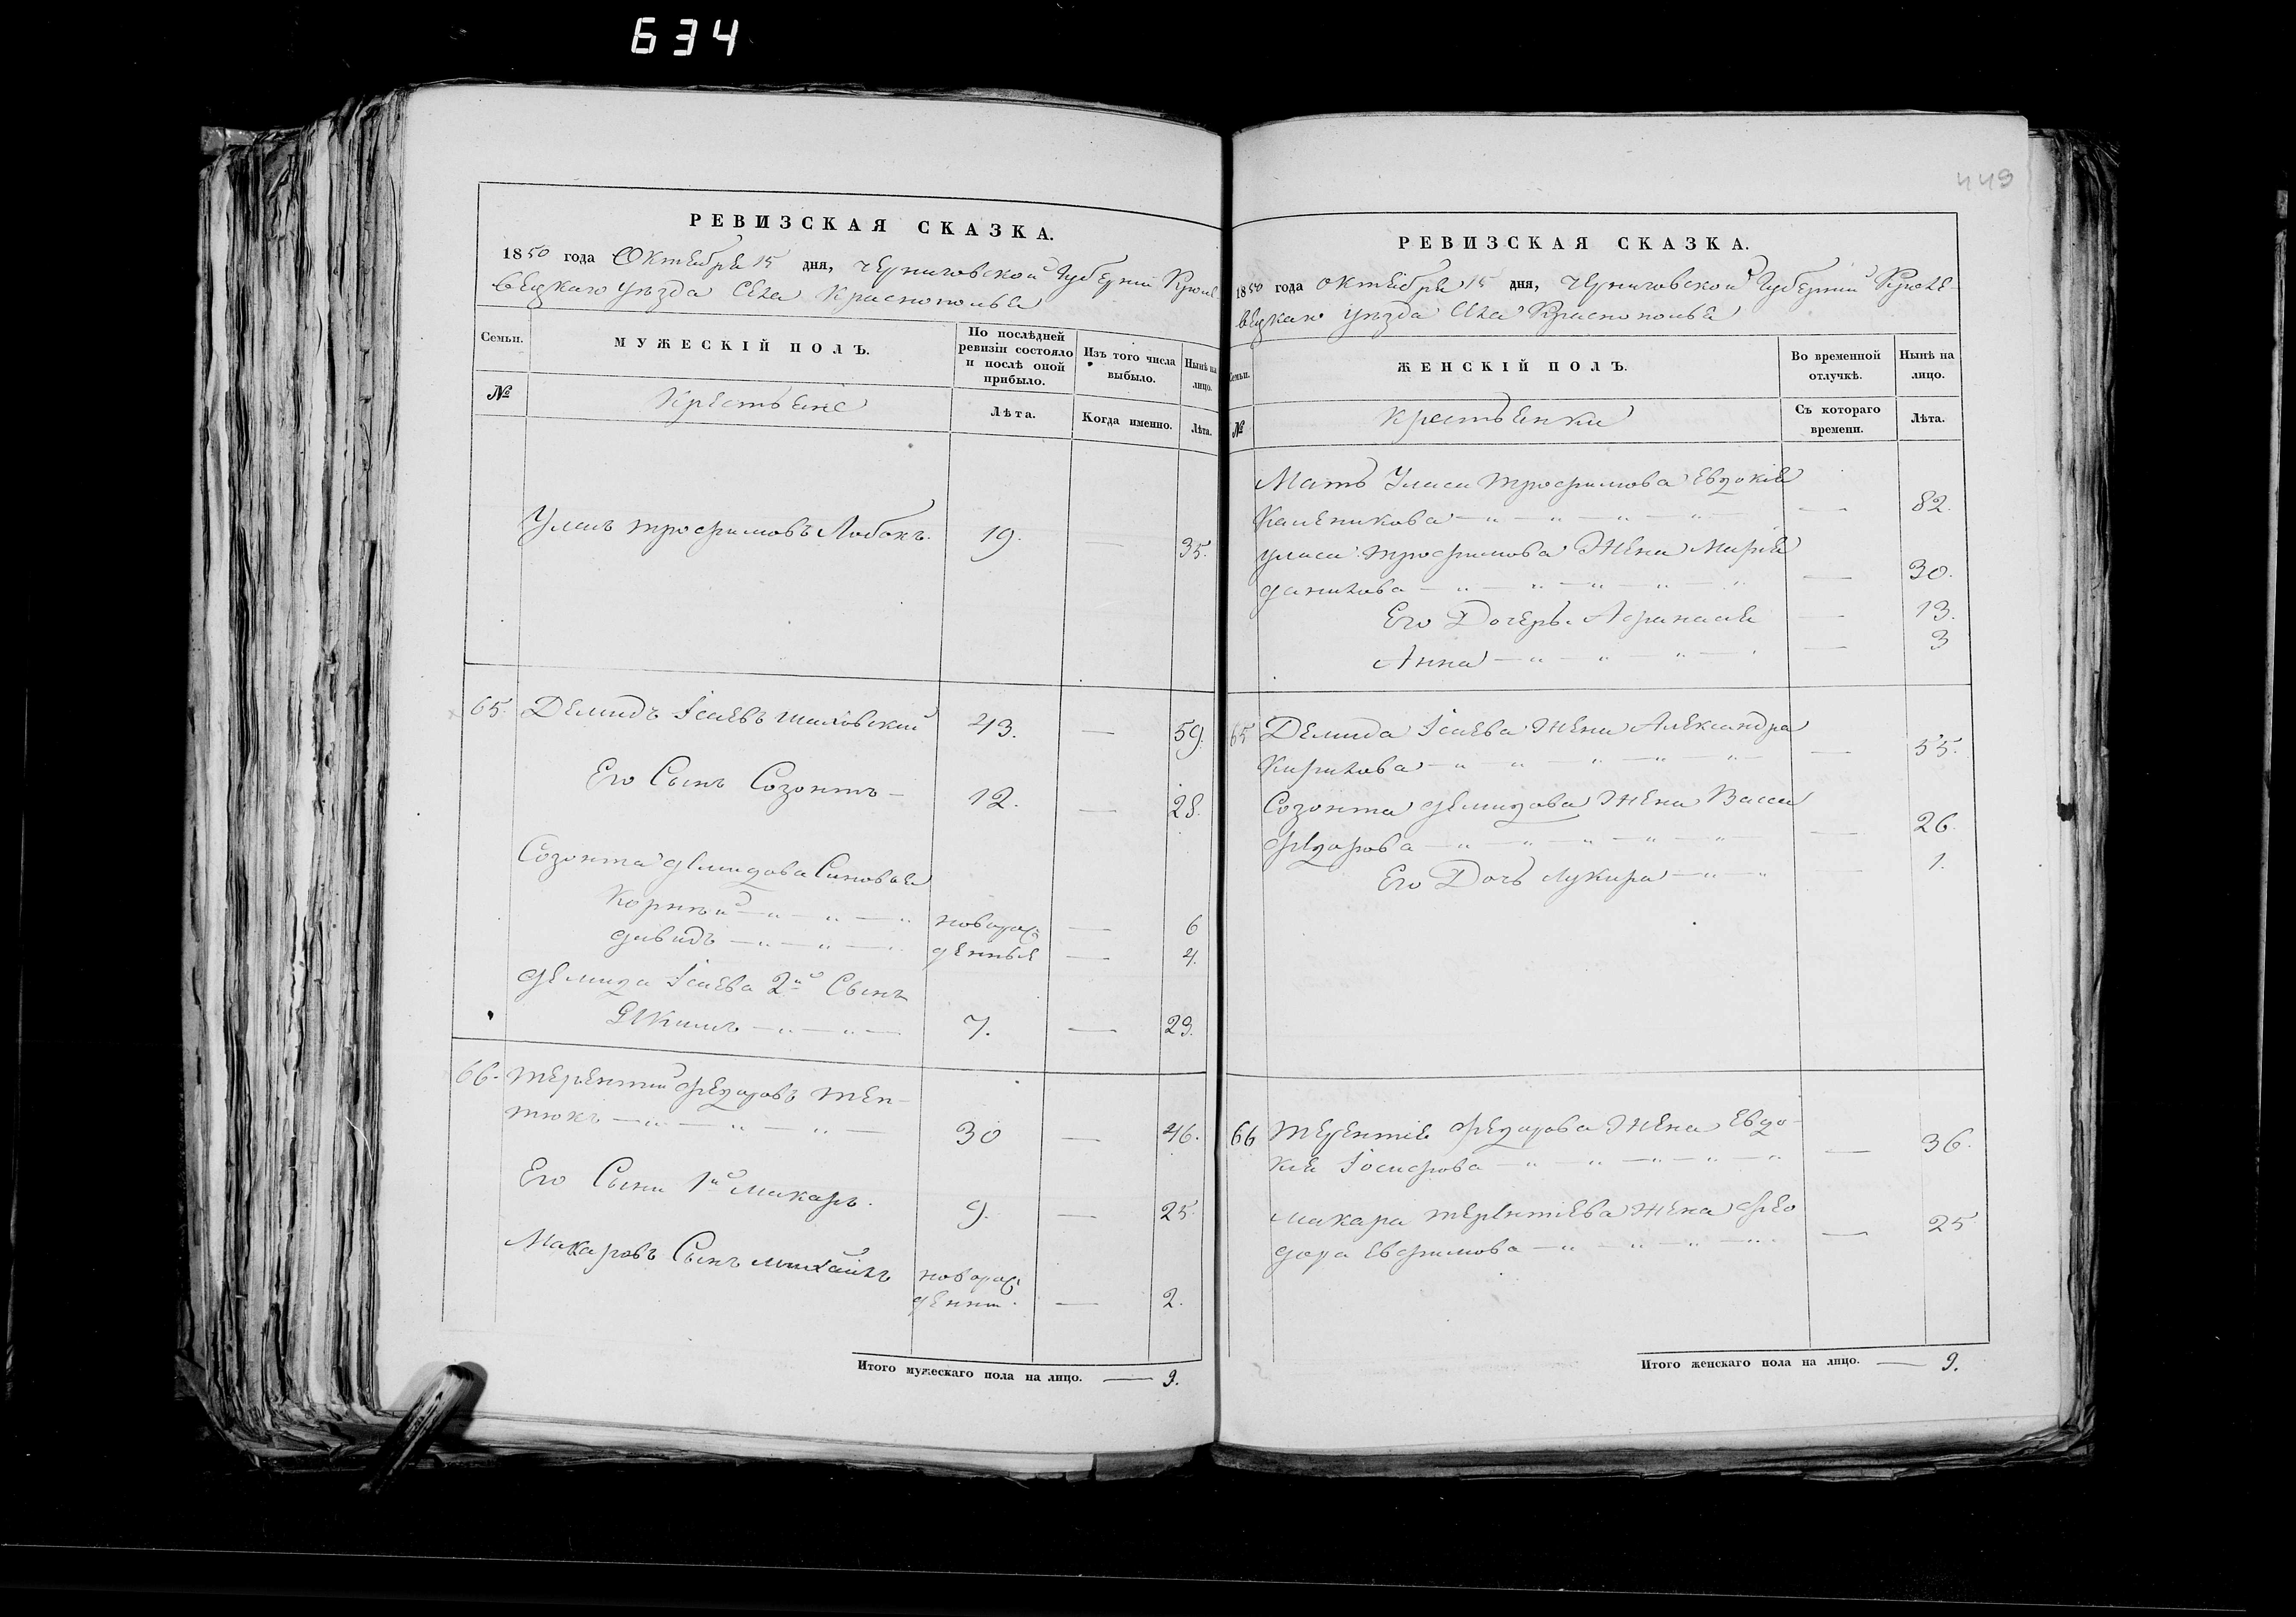 634
449
РЕВИЗСКАЯ СКАЗКА.
1850 года Октября 15 дня, Черниговской Губерніи Кроле-
вецкаго уѣзда Села Краснополья
Семьи.
МУЖЕСКІЙ ПОЛЪ.
По послѣдней ревизіи состояло и послѣ оной прибыло.
Изъ того числа выбыло.
Нынѣ на лицо.
№
Крестьяне
Лѣта.
Когда именно.
Лѣта.
Уласъ Трофимовъ Лобокъ. 19. — 35.
65. Демидъ Ісаевъ 43. — 59.
Его Сынъ Созонтъ — 12. — 28.
Созонта Демидова Синовья
Корнѣй — новорож — 6
Давидъ — денные — 4.
Демида Ісаева 2й Сынъ
Якимъ — 7. — 23.
66. Терентий Федоровъ Теп-
тюкъ — 30 — 46.
Его Сыни 1й Макаръ. 9. — 25.
Макаровъ Сынъ Михайлъ новорож
денн. — 2.
Итого мужескаго пола на лицо. — 9.
РЕВИЗСКАЯ СКАЗКА.
1850 года Октября 15 дня, Черниговской Губерніи Кроле-
вецкаго уѣзда Села Краснополья
Семьи.
ЖЕНСКІЙ ПОЛЪ.
Во временной отлучкѣ.
Нынѣ на лицо.
№
Крестьянки
Съ котораго времени.
Лѣта.
Мать Уласа Трофимова Евдокія
Каленикова — 82.
Уласа Трофимова Жена Марія
Данилова — 30.
Его Дочеръ Афанасія — 13.
Анна — 3
65 Демида Ісаева Жена Александра
Кирилова — 55.
Созонта Демидова Жена Васса
Федорова — 26.
Его Дочь Лукира — 1.
66 Терентія Федорова Жена Евдо-
кія Іосифова — 36.
Макара Терентіева Жена Фео
дора Евфимова — 25
Итого женскаго пола на лицо. — 9.